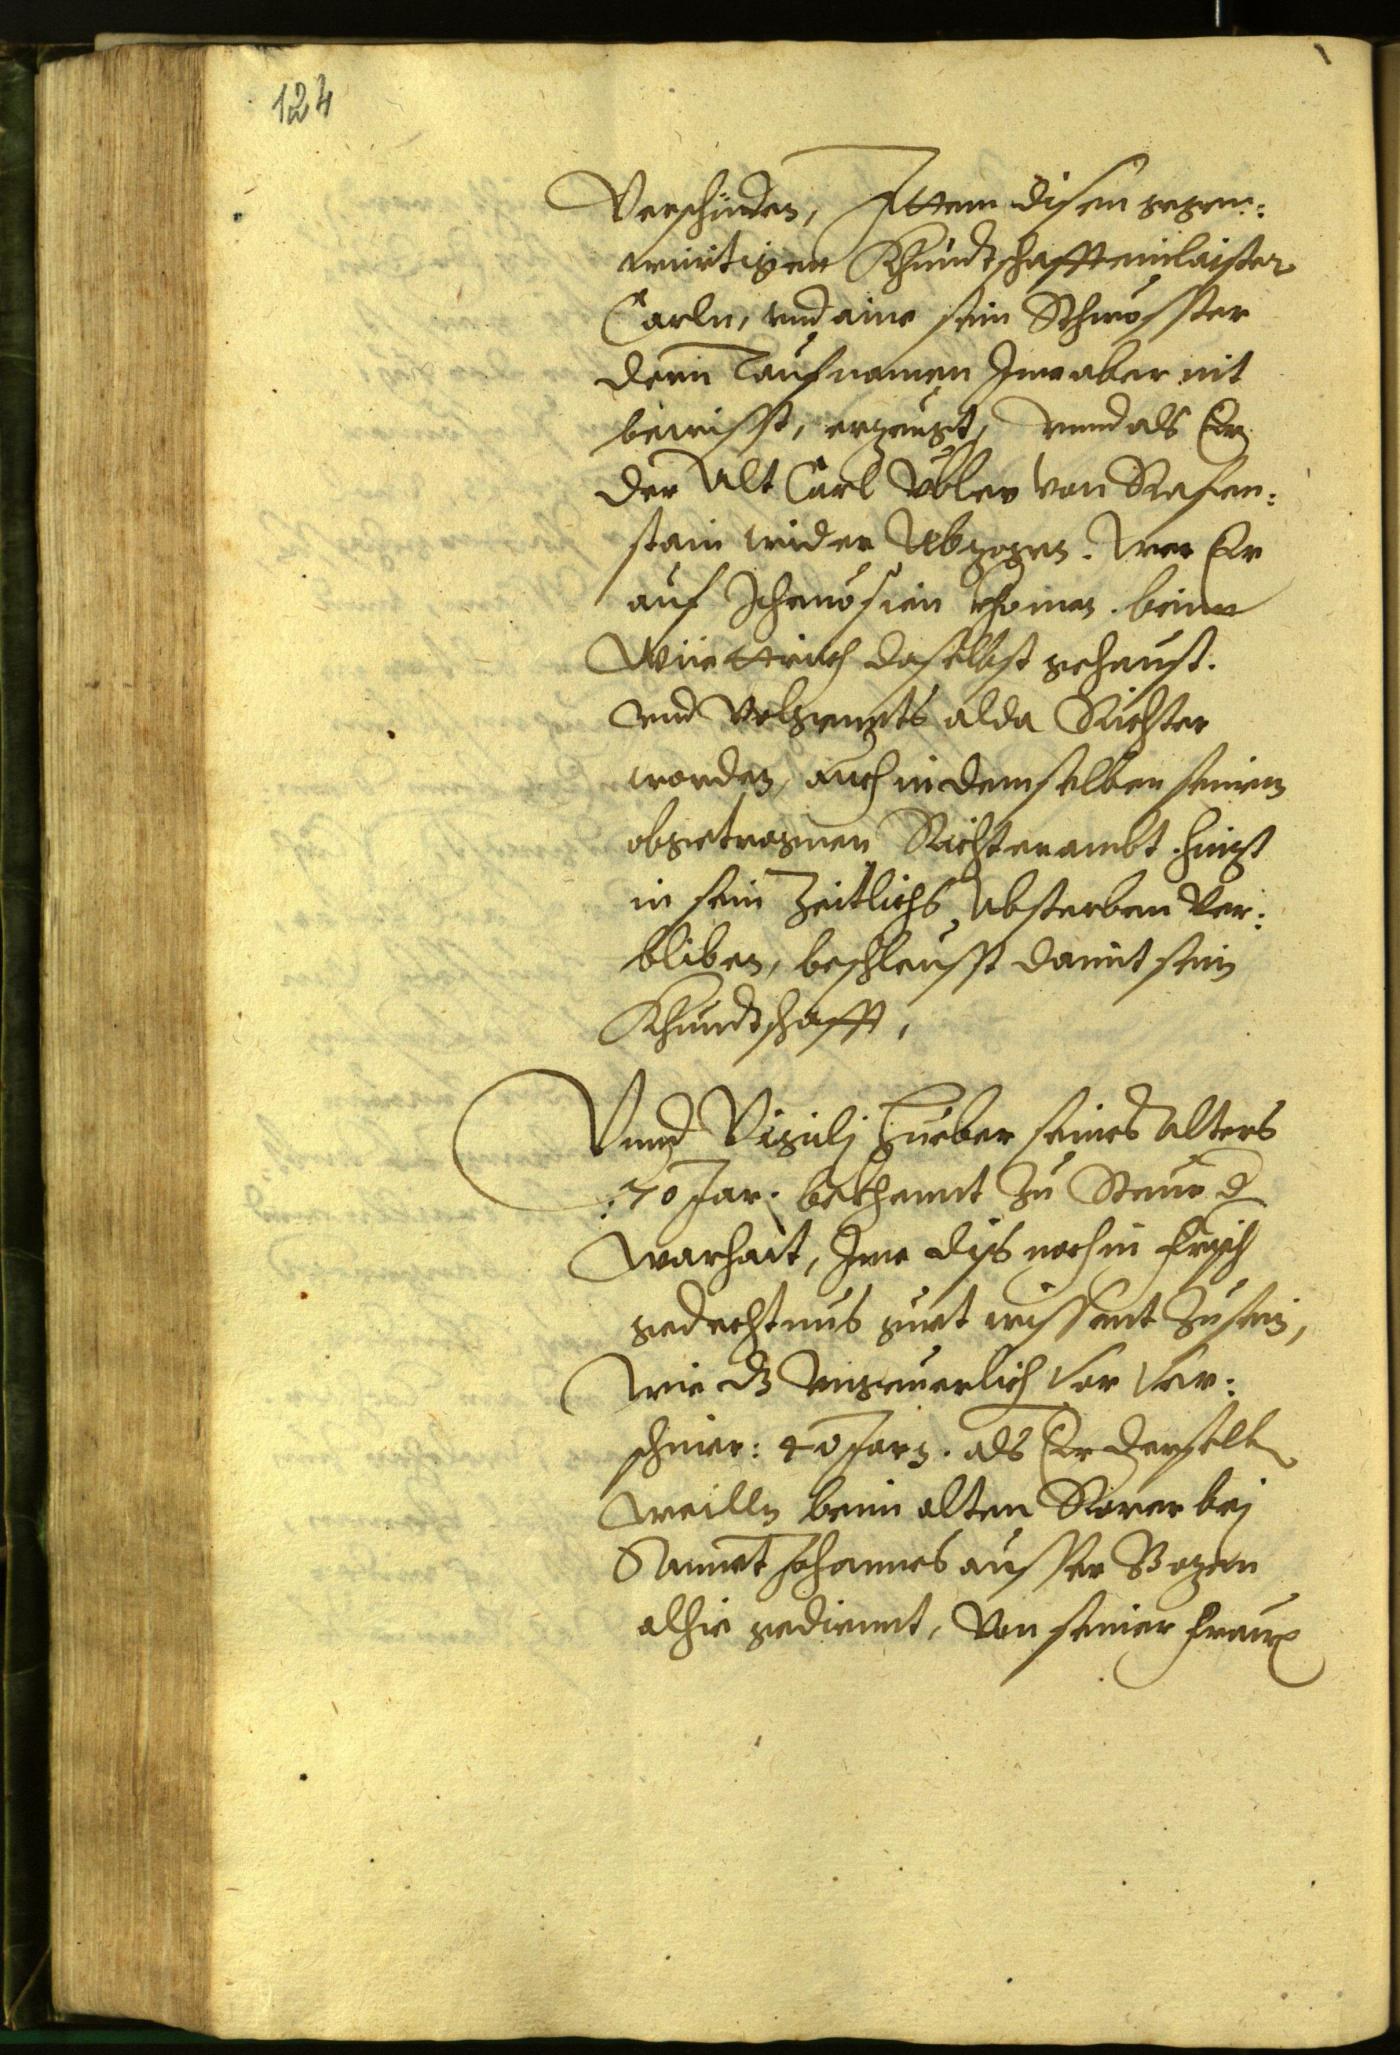 124
Verschinden, Ittem disen gegen:
würtigen Khundtschafft einlaister
Carln, und aine sein Schwösster
deren Taufnamen Ime aber nit
bewisst, erzeugt, unnd als Er
der Alt Carl Übler von Rafen:
stain wider Abzogen. Wer Er
auf Jehenösien khomen. beim
Wüettrich daselbst gehaust.
und volgennts alda Richter
worden, auch in demselben seinem
obgetragnen Richterambt. hinzt
in sein Zeitlichs Absterben Ver:
bliben, beschleusst damit sein
Khundtschafft,
Unnd Vigilj Hueber seines Alters
:70 Jar: bekhennt zu Steur d
warhait, Ime diss noch in frisch
gedechtnus guet wissent zu sein,
wie dz ungeuerlich vor ver:
schiner: 40 Jarn. als Er derselbn
weilln beim alten Rorer bej
Sannt Johannes ausser Bozen
alhie gediennt, Von seiner Frauen